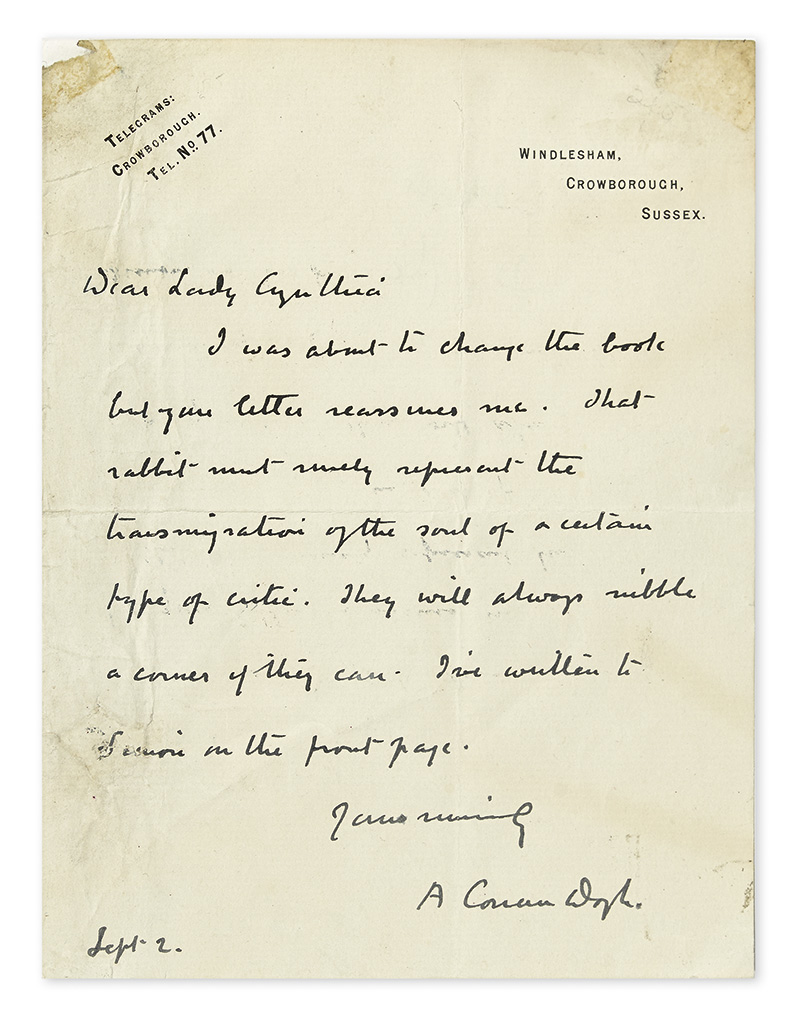 TELEGRAMS:
CROWBOROUGH.
TEL. No 77.
WINDLESHAM,
CROWBOROUGH,
SUSSEX.
Dear Lady Cynthia
I was about to change the book
but your letter reassures me. That
rabbit must surely represent the
transmigration of the soul of a certain
type of critic. They will always nibble
a corner if they can. I've written to
Simon on the front page.
Yours sincerely
A Conan Doyle.
Sept 2.